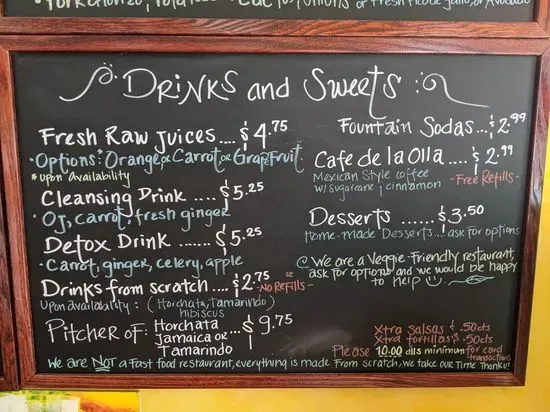 or Fresh Pico de gallo, or Avocado
Drinks and Sweets
Fresh Raw Juices.... $4.75
• Options: Orange, or Carrot, or Grapefruit
*Upon Availability
Cleansing Drink .... $5.25
• OJ, carrot, fresh ginger
Detox Drink ...... $5.25
• Carrot, ginger, celery, apple
Drinks from scratch.... $2.75 -No Refills-
Upon availability: (Horchata, Tamarindo)
hibiscus
Pitcher of: Horchata
Jamaica or... $9.75
Tamarindo
Fountain Sodas...$2.99
Cafe de la Olla .... $2.99
Mexican Style coffee
w/sugarcane ; cinnamon -Free Refills-
Desserts ...... $3.50
Home-made Desserts... ask for options
We are a Veggie-Friendly restaurant,
ask for options and we would be happy
to help
Xtra Salsas .50cts
Xtra tortillas .50cts
Please 10.00 dlls minimum for card
transactions
We are NOT a Fast food restaurant, everything is made From scratch, we take our Time Thanku!